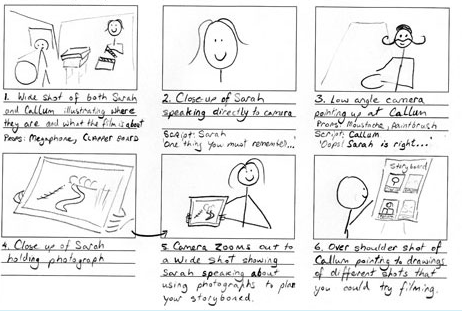 1. Wide shot of both Sarah
and Callum illustrating where
they are and what the film is about
Props: Megaphone, CLAPPER BOARD
2. Close-up of Sarah
speaking directly to camera
Script: Sarah
'One thing you must remember...'
3. Low angle camera
pointing up at Callum
Props: Moustache, Paintbrush
Script: Callum
'Oops! Sarah is right...'
4. Close up of Sarah
holding photograph
5. Camera zooms out to
a wide shot showing
Sarah speaking about
using photographs to plan
your storyboard.
Storyboard
6. Over shoulder shot of
Callum pointing to drawings
of different shots that
you could try filming.